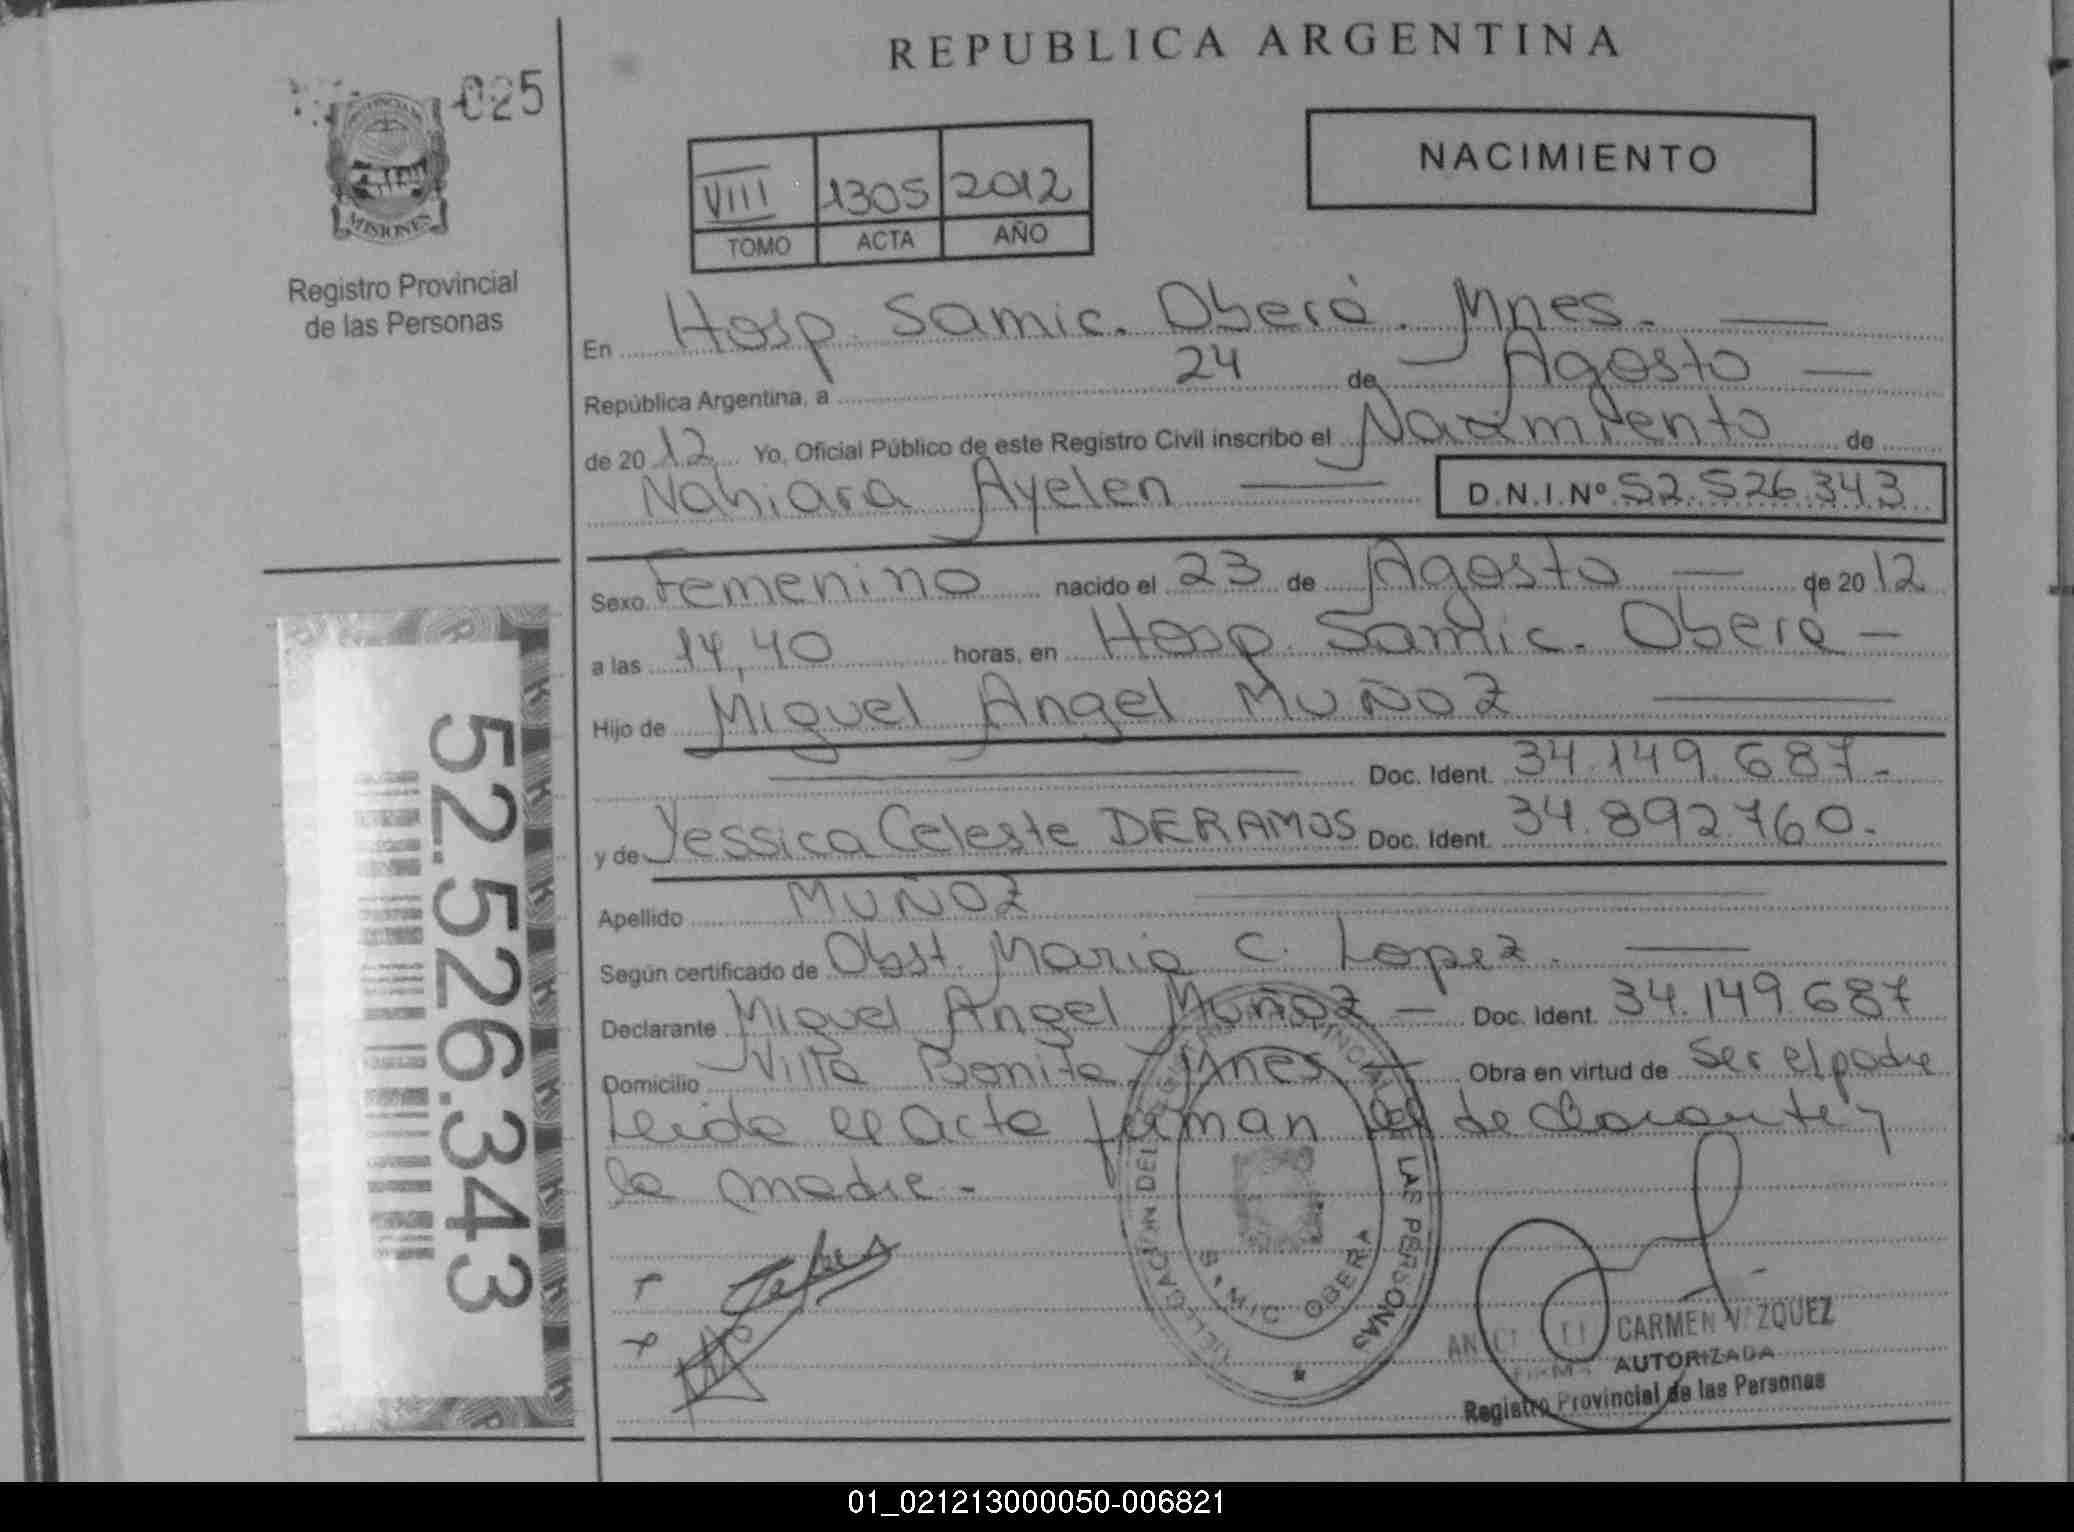 REPUBLICA ARGENTINA
025
NACIMIENTO
VIII 1305 2012
TOMO ACTA AÑO
MISIONES
Registro Provincial
de las Personas
En Hosp. Samic. Oberá. Mnes.
República Argentina, a 24 de Agosto
de 2012 Yo, Oficial Público de este Registro Civil inscribo el Nacimiento de
Nahiara Ayelen D.N.I.Nº 52.526.343
Sexo Femenino nacido el 23 de Agosto de 2012
a las 14,40 horas, en Hosp. Samic. Oberá
Hijo de Miguel Angel MUÑOZ
Doc. Ident. 34.149.687.
y de Yessica Celeste DERAMOS Doc. Ident. 34.892.760.
Apellido MUÑOZ
Según certificado de Obst. Maria C. Lopez.
Declarante Miguel Angel Muñoz Doc. Ident. 34.149.687
Domicilio Villa Bonita. Mnes Obra en virtud de ser el padre
Leida el acta firman el declarante y
la madre.
52.526.343
DE LAS PERSONAS
OBERA
CARMEN VAZQUEZ
FIRMA AUTORIZADA
Registro Provincial de las Personas
01_021213000050-006821